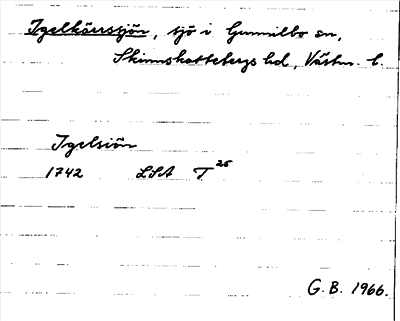 Igelkärrssjön, sjö i Gunnilbo sn,
Skinnskattebergs hd, Västm. l.
Igelsiön
1742 LSA T 26
G. B. 1966.